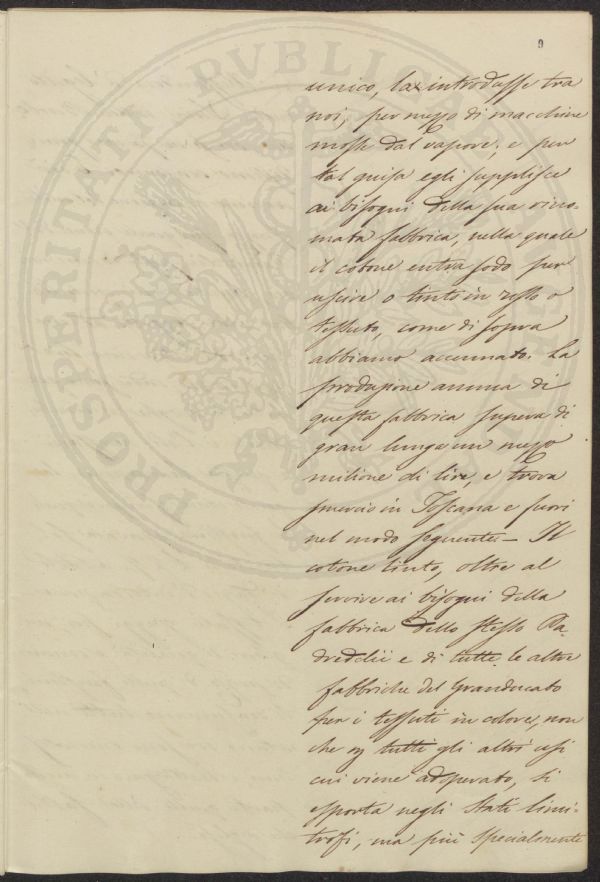 9
unico, la introdusse tra
noi, per mezzo di macchine
mosse dal vapore; e per
tal guisa egli supplisce
ai bisogni della sua rino-
mata fabbrica, nella quale
il cotone entra sodo per
uscire o tinto in refe o
tessuto, come di sopra
abbiamo accennato. La
produzione annua di
questa fabbrica supera di
gran lunga un mezzo
milione di lire, e trova
smercio in Toscana e fuori
nel modo seguente — Il
cotone tinto, oltre al
servire ai bisogni della
fabbrica dello stesso
e di tutte le altre
fabbriche del Granducato
per i tessuti in colore, non
che tutti gli altri usi
cui viene adoperato, si
esporta negli Stati limi-
trofi, ma più specialmente
PROSPERITATI PVBLICAE